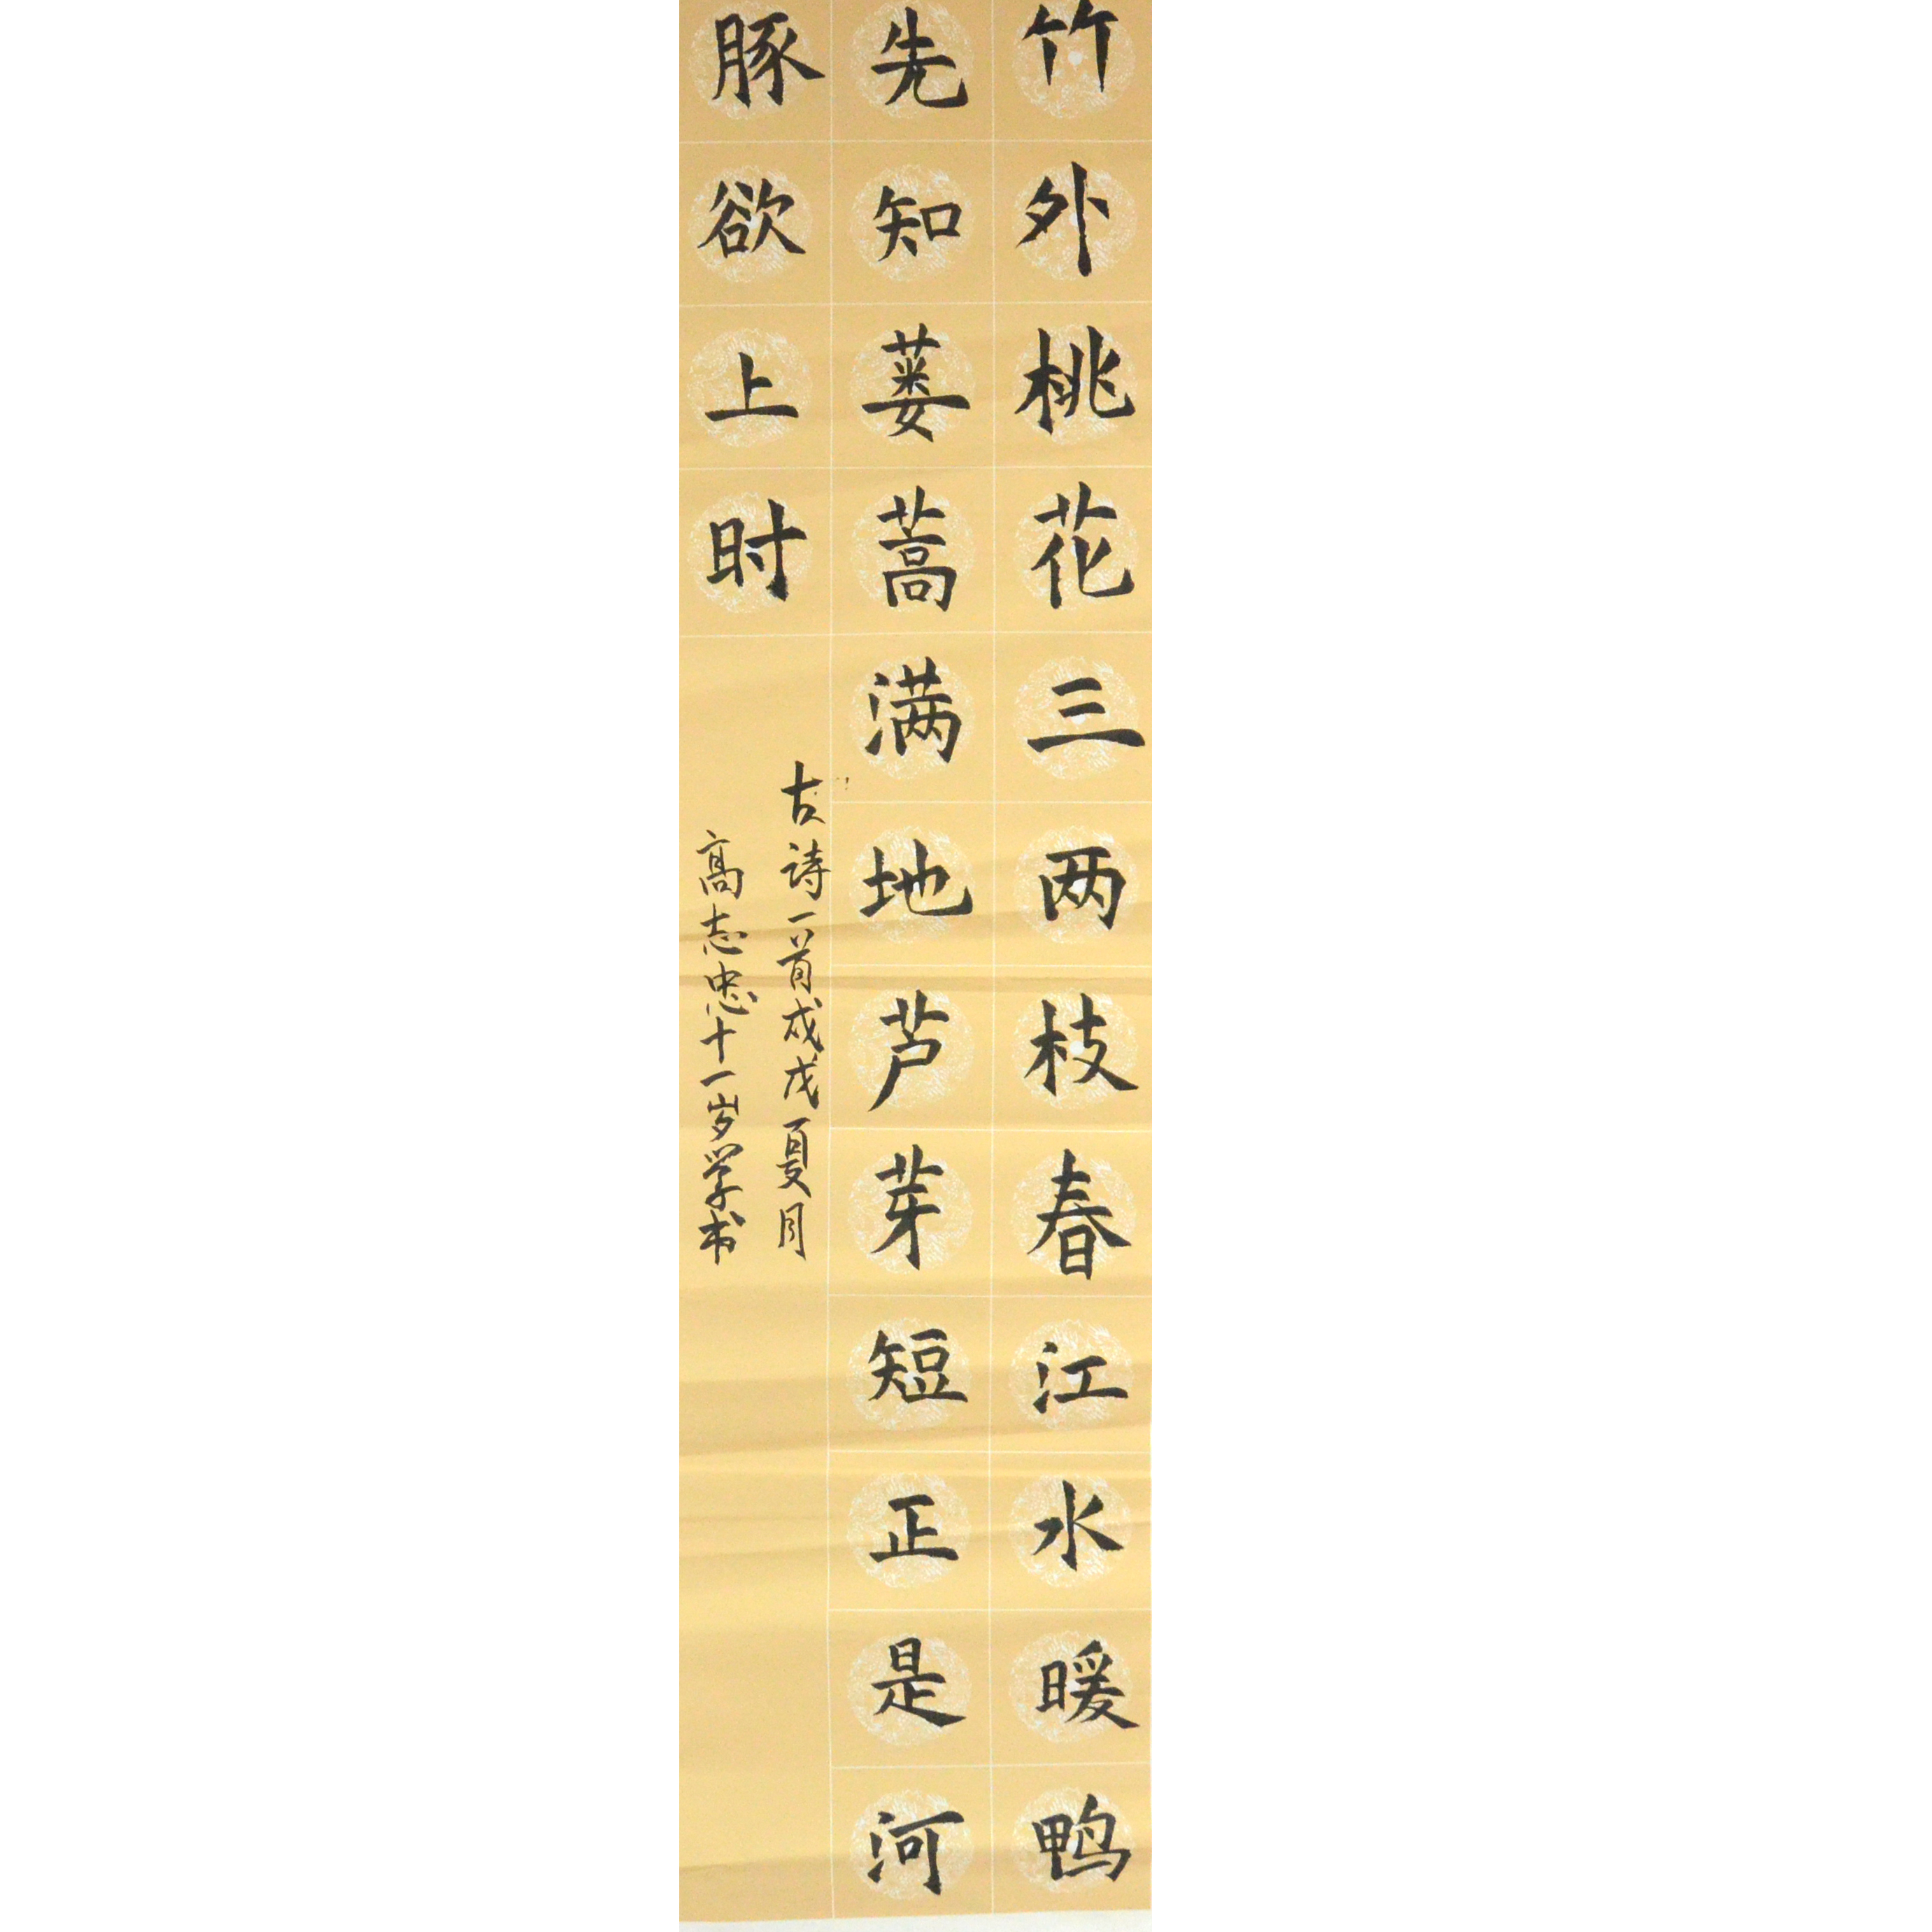 竹外桃花三两枝春江水暖鸭
先知蒌蒿满地芦芽短正是河
豚欲上时
古诗一首戊戌夏月
高志忠十一岁学书